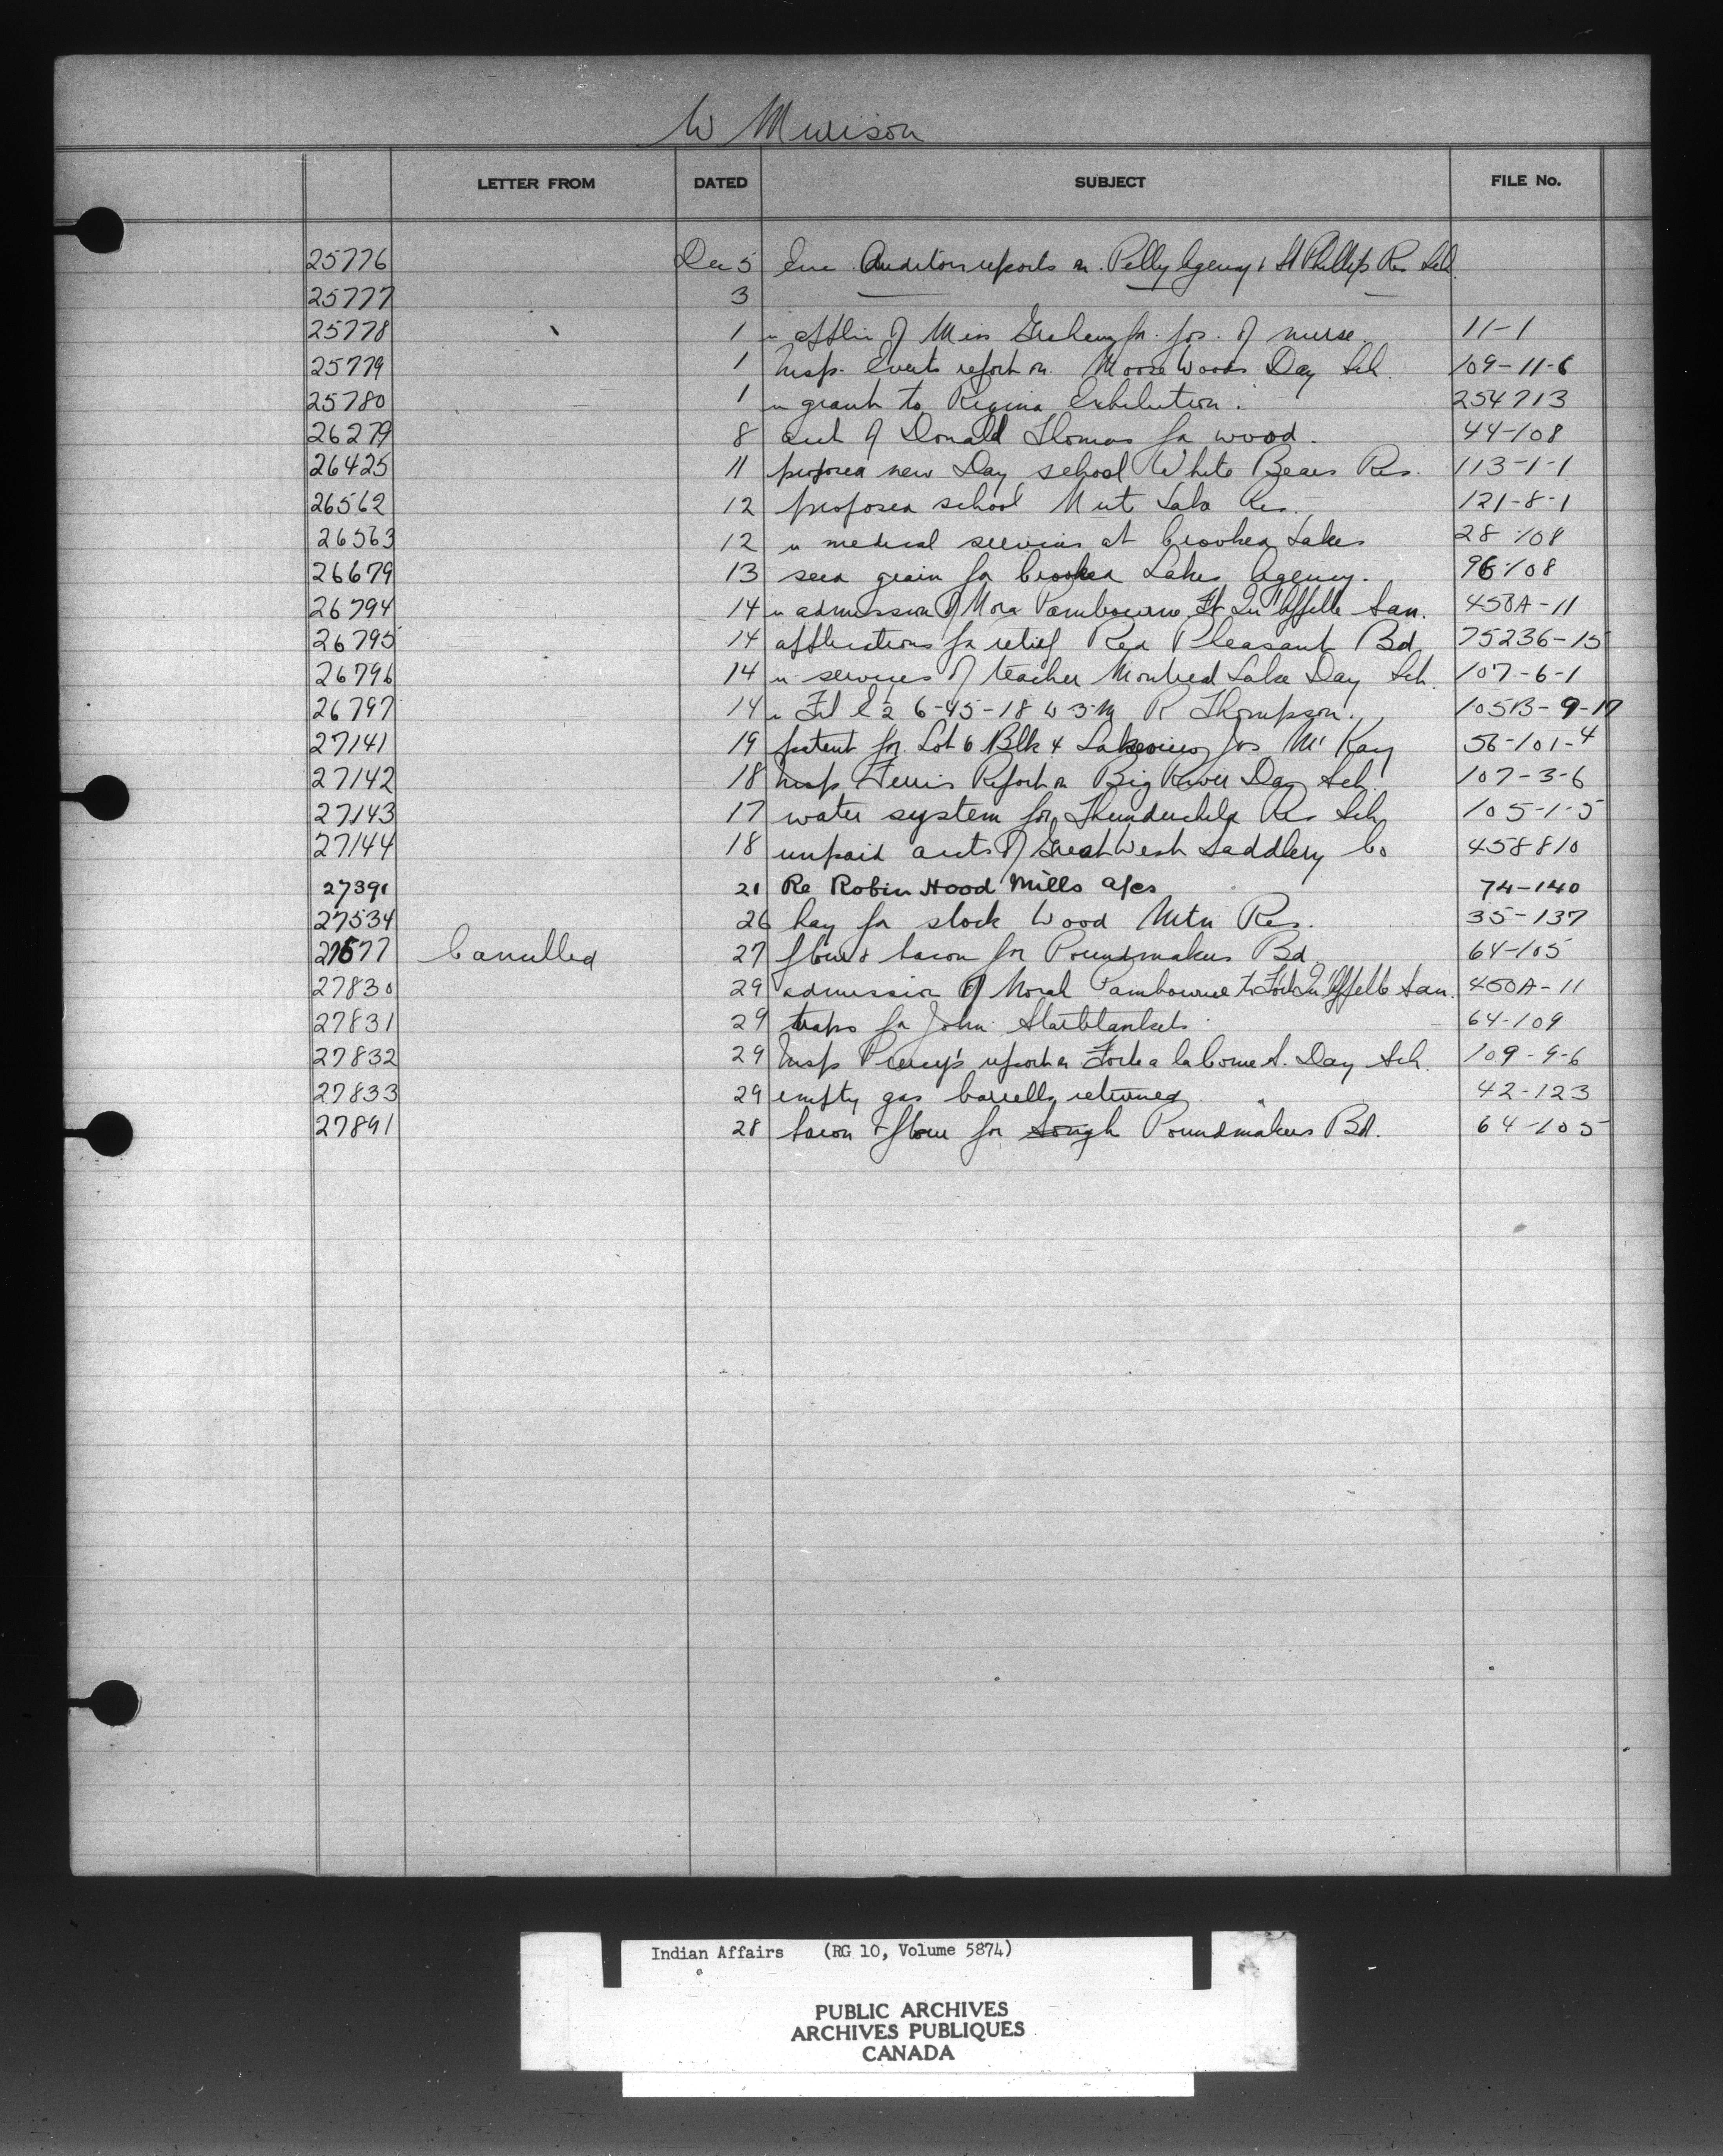 W Murison
LETTER FROM DATED SUBJECT FILE No.
25776 Dec 5 Enc. Auditors reports on Pelly Agency & St Phillips Res Sch.
25777 3 — — —
25778 1 u applin of Miss Graham for pos. of nurse 11-1
25779 1 Insp. Everts report on Moose Woods Day Sch. 109-11-6
25780 1 u grant to Regina Exhibition. 254713
26279 8 acct of Donald Thomas for wood. 44-108
26425 11 proposed new Day school White Bears Res. 113-1-1
26562 12 proposed school Nut Lake Res. 121-8-1
26563 12 u medical services at Crooked Lakes 28-108
26679 13 seed grain for Crooked Lakes Agency. 96-108
26794 14 u admission of Nora Pambourne Ft Qu'Appelle San. 450A-11
26795 14 applications for relief Red Pheasant Bd 75236-15
26796 14 u services of teacher Montreal Lake Day Sch. 107-6-1
26797 14 u E 1/2 6-45-18 W 3 M R Thompson. 105B-9-17
27141 19 patent for Lot 6 Blk 4 Lakeview Jos McKay 56-101-4
27142 18 Insp Ferris Report on Big River Day Sch. 107-3-6
27143 17 water system for Thunderchild Res Sch 105-1-5
27144 18 unpaid accts of Great West Saddlery Co 458810
27391 21 Re Robin Hood Mills a/cs 74-140
27534 26 hay for stock Wood Mtn Res. 35-137
27577 Cancelled 27 flour & bacon for Poundmakers Bd 64-105
27830 29 admission of Norah Pambourne to Fort Qu'Appelle San. 450A-11
27831 29 traps for John Starblankets 64-109
27832 29 Insp report on Fort a la Corne S. Day Sch. 109-9-6
27833 29 empty gas barrells returned 42-123
27891 28 bacon & flour for Poundmakers Bd. 64-105
Indian Affairs (RG 10, Volume 5874)
PUBLIC ARCHIVES
ARCHIVES PUBLIQUES
CANADA